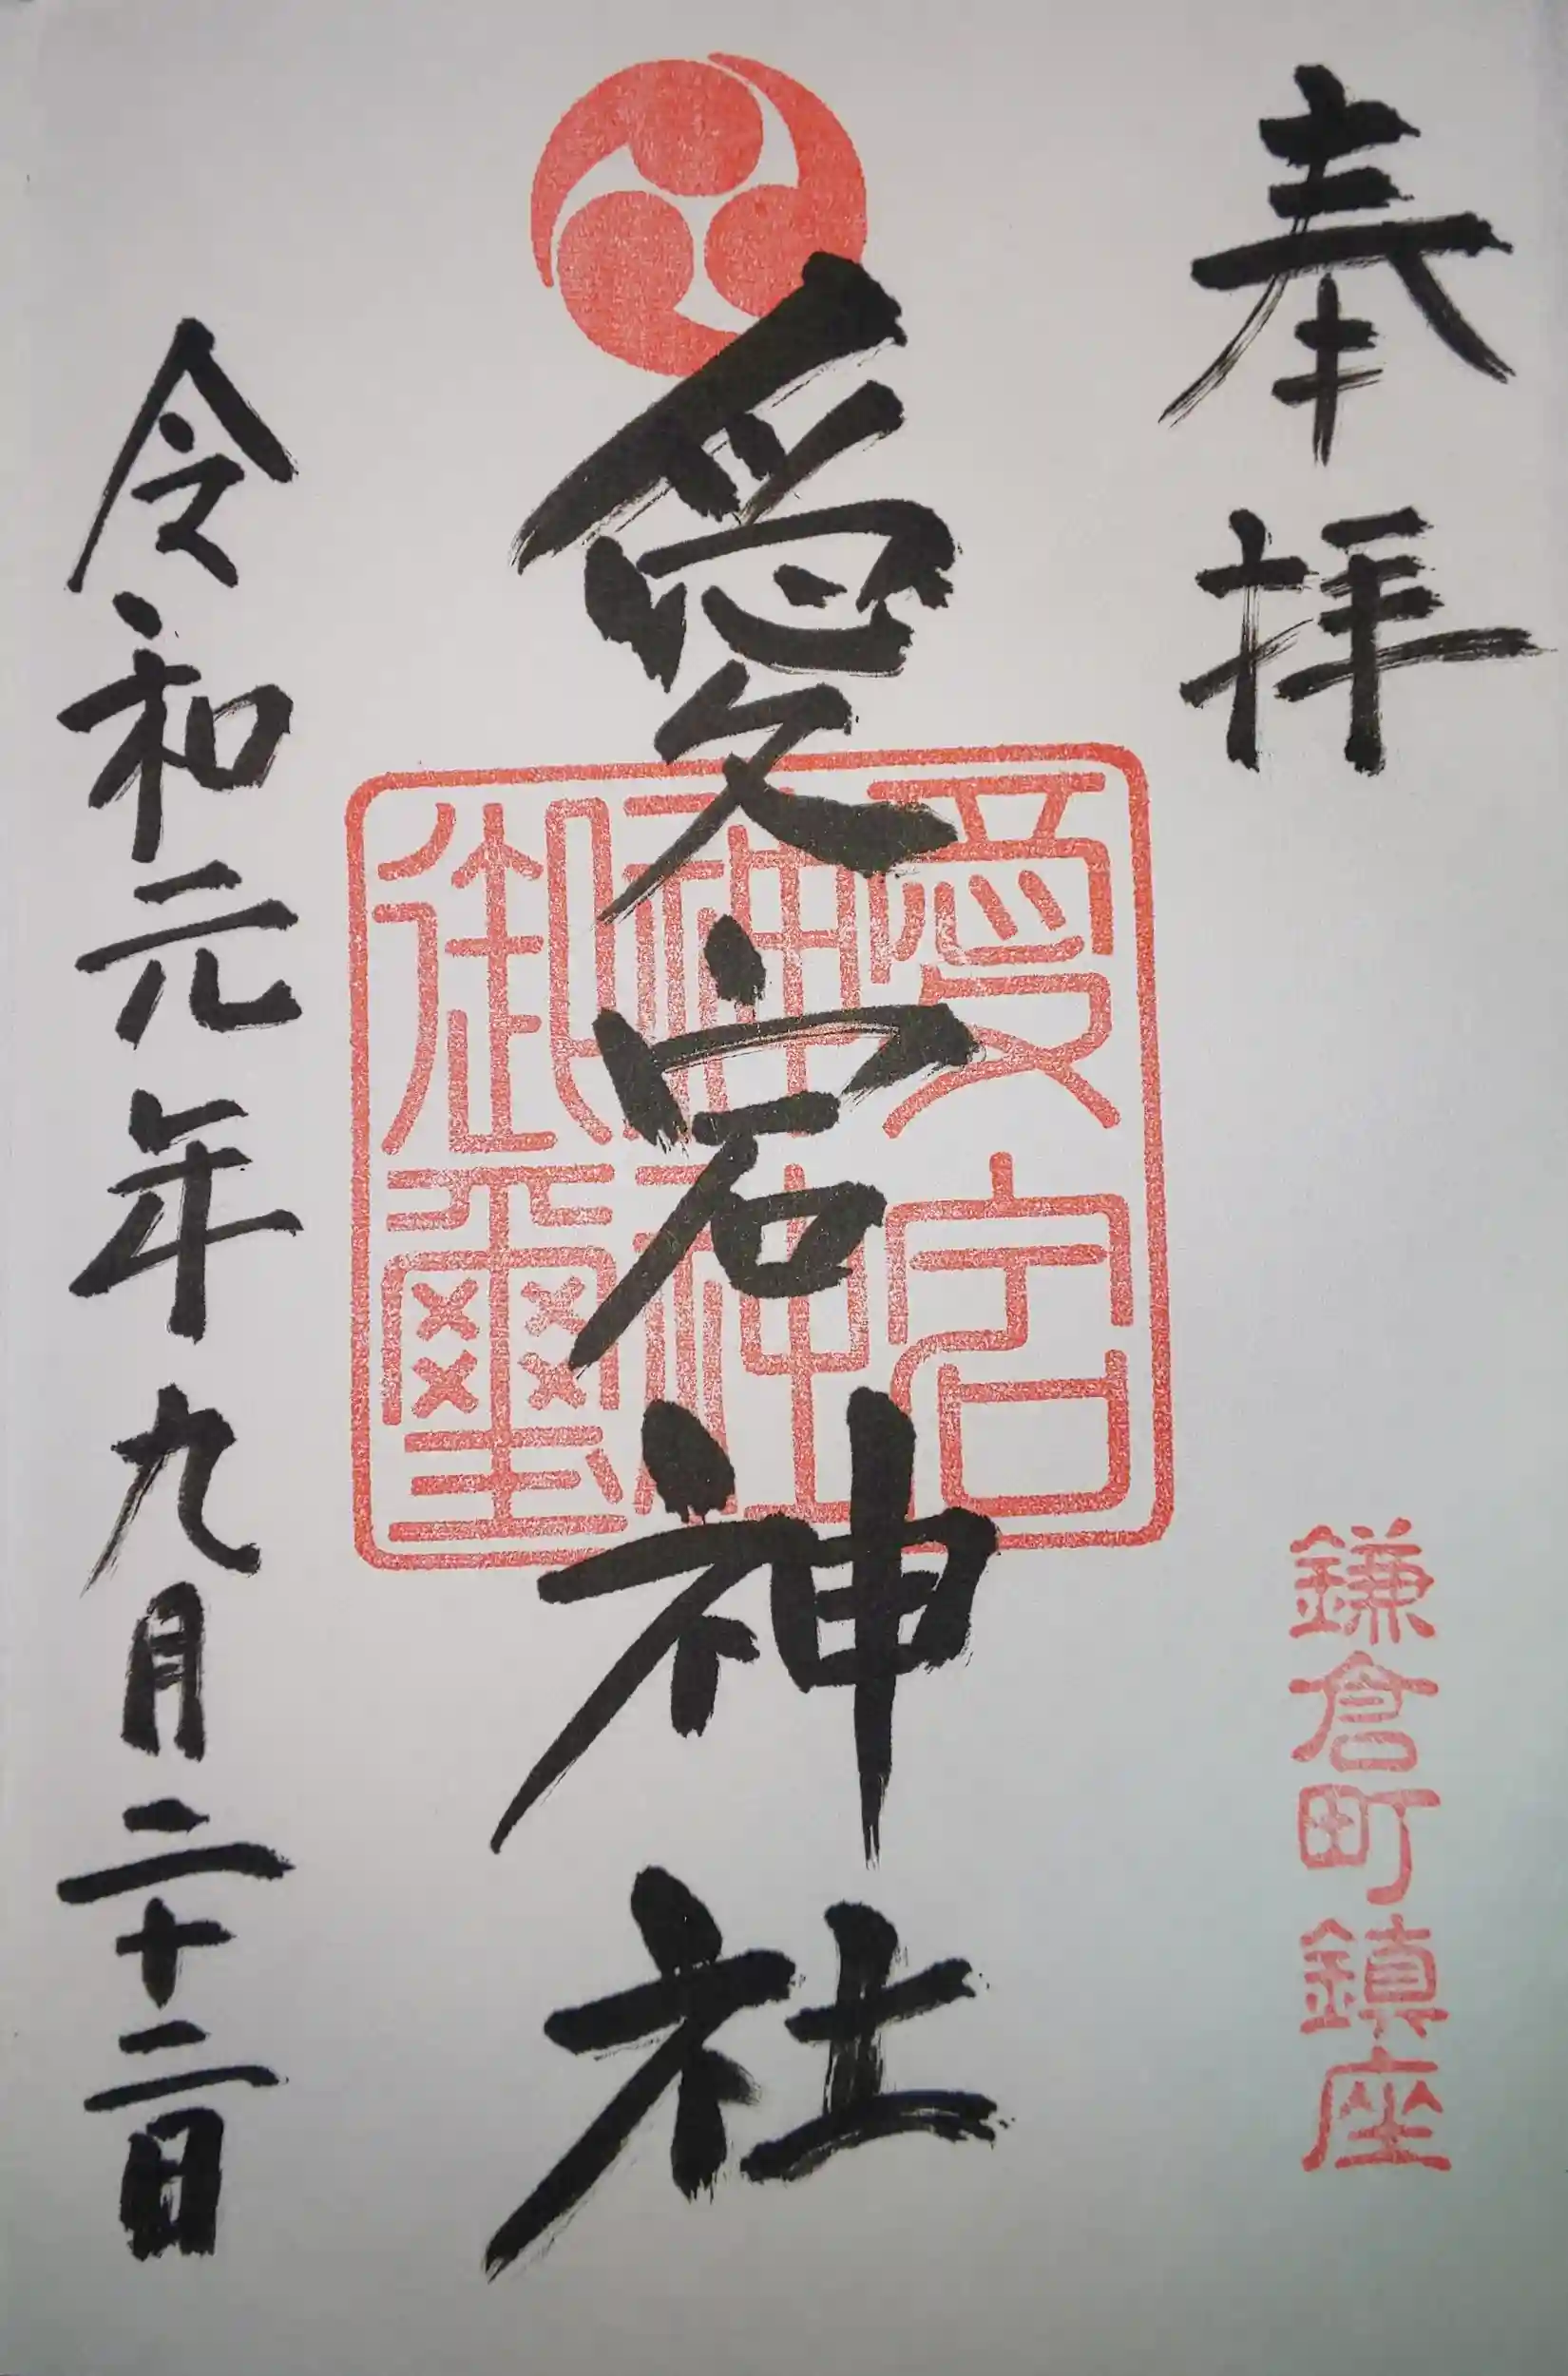 奉拝
鎌倉町鎮座
愛宕神社
愛宕神社神璽
令和元年九月二十二日